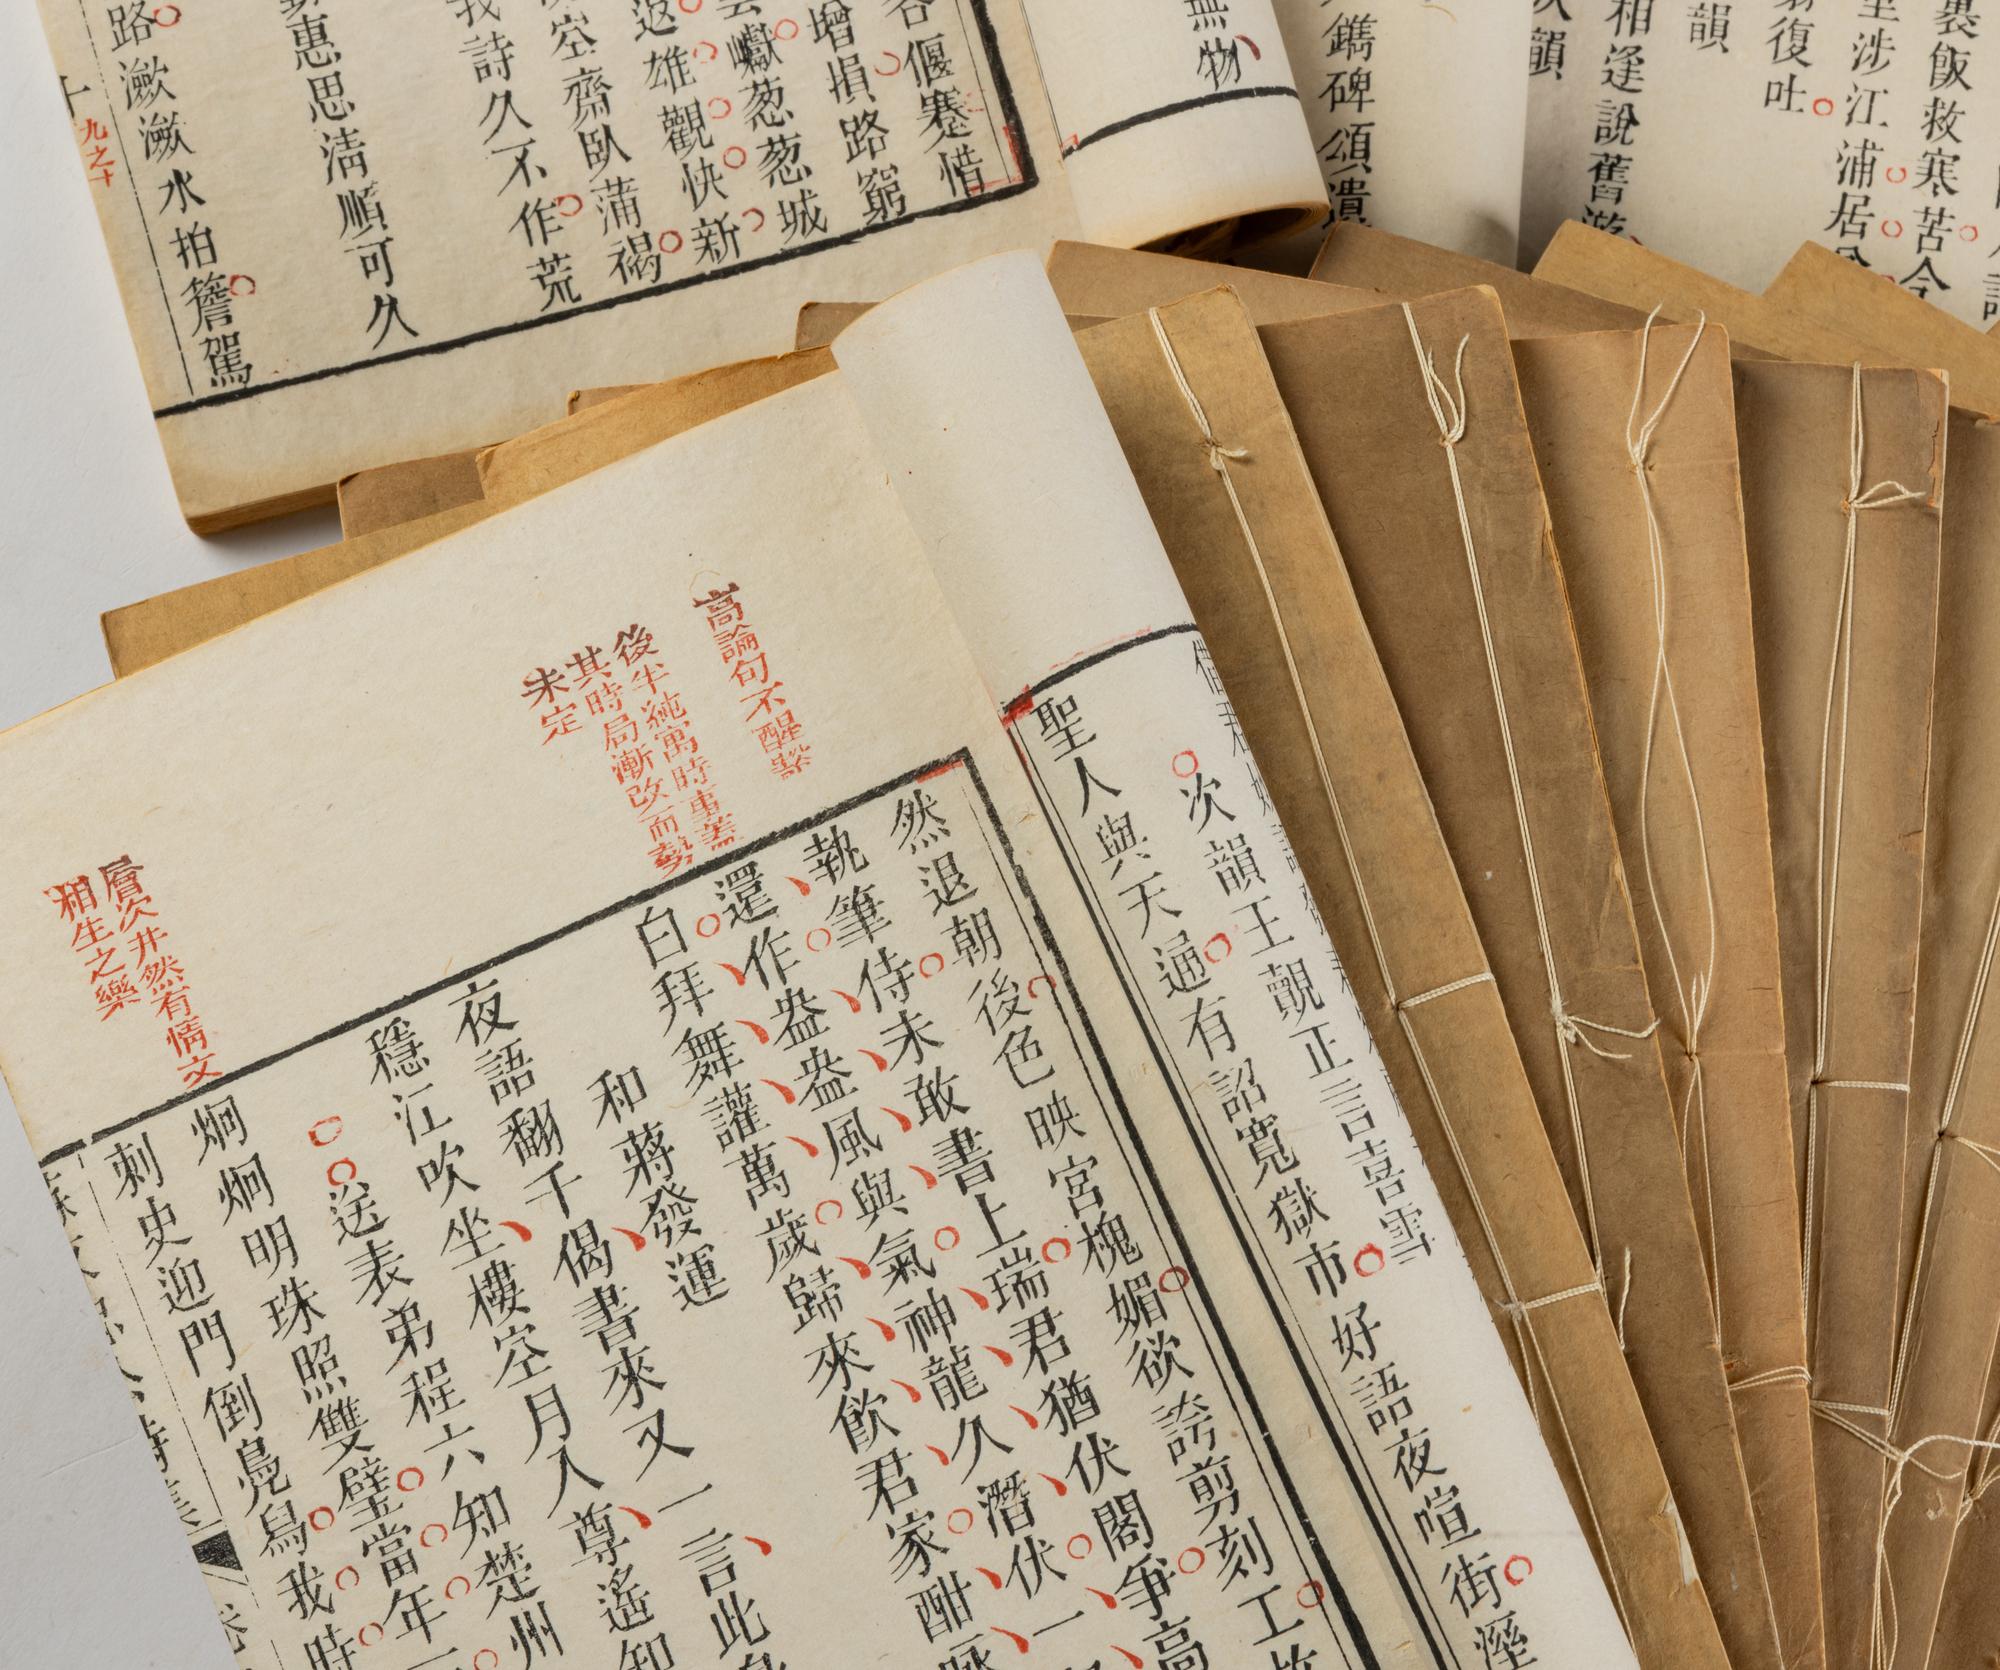 裹飯救寒苦今
涉江浦居
復吐
韻
相逢說舊游
韻
鐫碑頌遺
無物
谷偃蹇惜
增損路窮
巘葱葱城
返雄觀快新
空齋臥蒲褐
我詩久不作荒
惠思清順可久
路瀲瀲水拍簷駕
九之十
高論句不醒豁
後半純寓時事蓋
其時局漸改而勢
未定
層次井然有情文
相生之樂
次韻王覿正言喜雪
聖人與天通有詔寬獄市好語夜喧街溼
然退朝後色映宮槐媚欲誇剪刻工
執筆侍未敢書上瑞君猶伏閤爭高
還作盎盎風與氣神龍久潛伏一
白拜舞讙萬歲歸來飲君家酣詠
和蔣發運
夜語翻千偈書來又一言此身
穩江吹坐樓空月入尊遙知
送表弟程六知楚州
炯炯明珠照雙璧當年
刺史迎門倒鳧舄我時